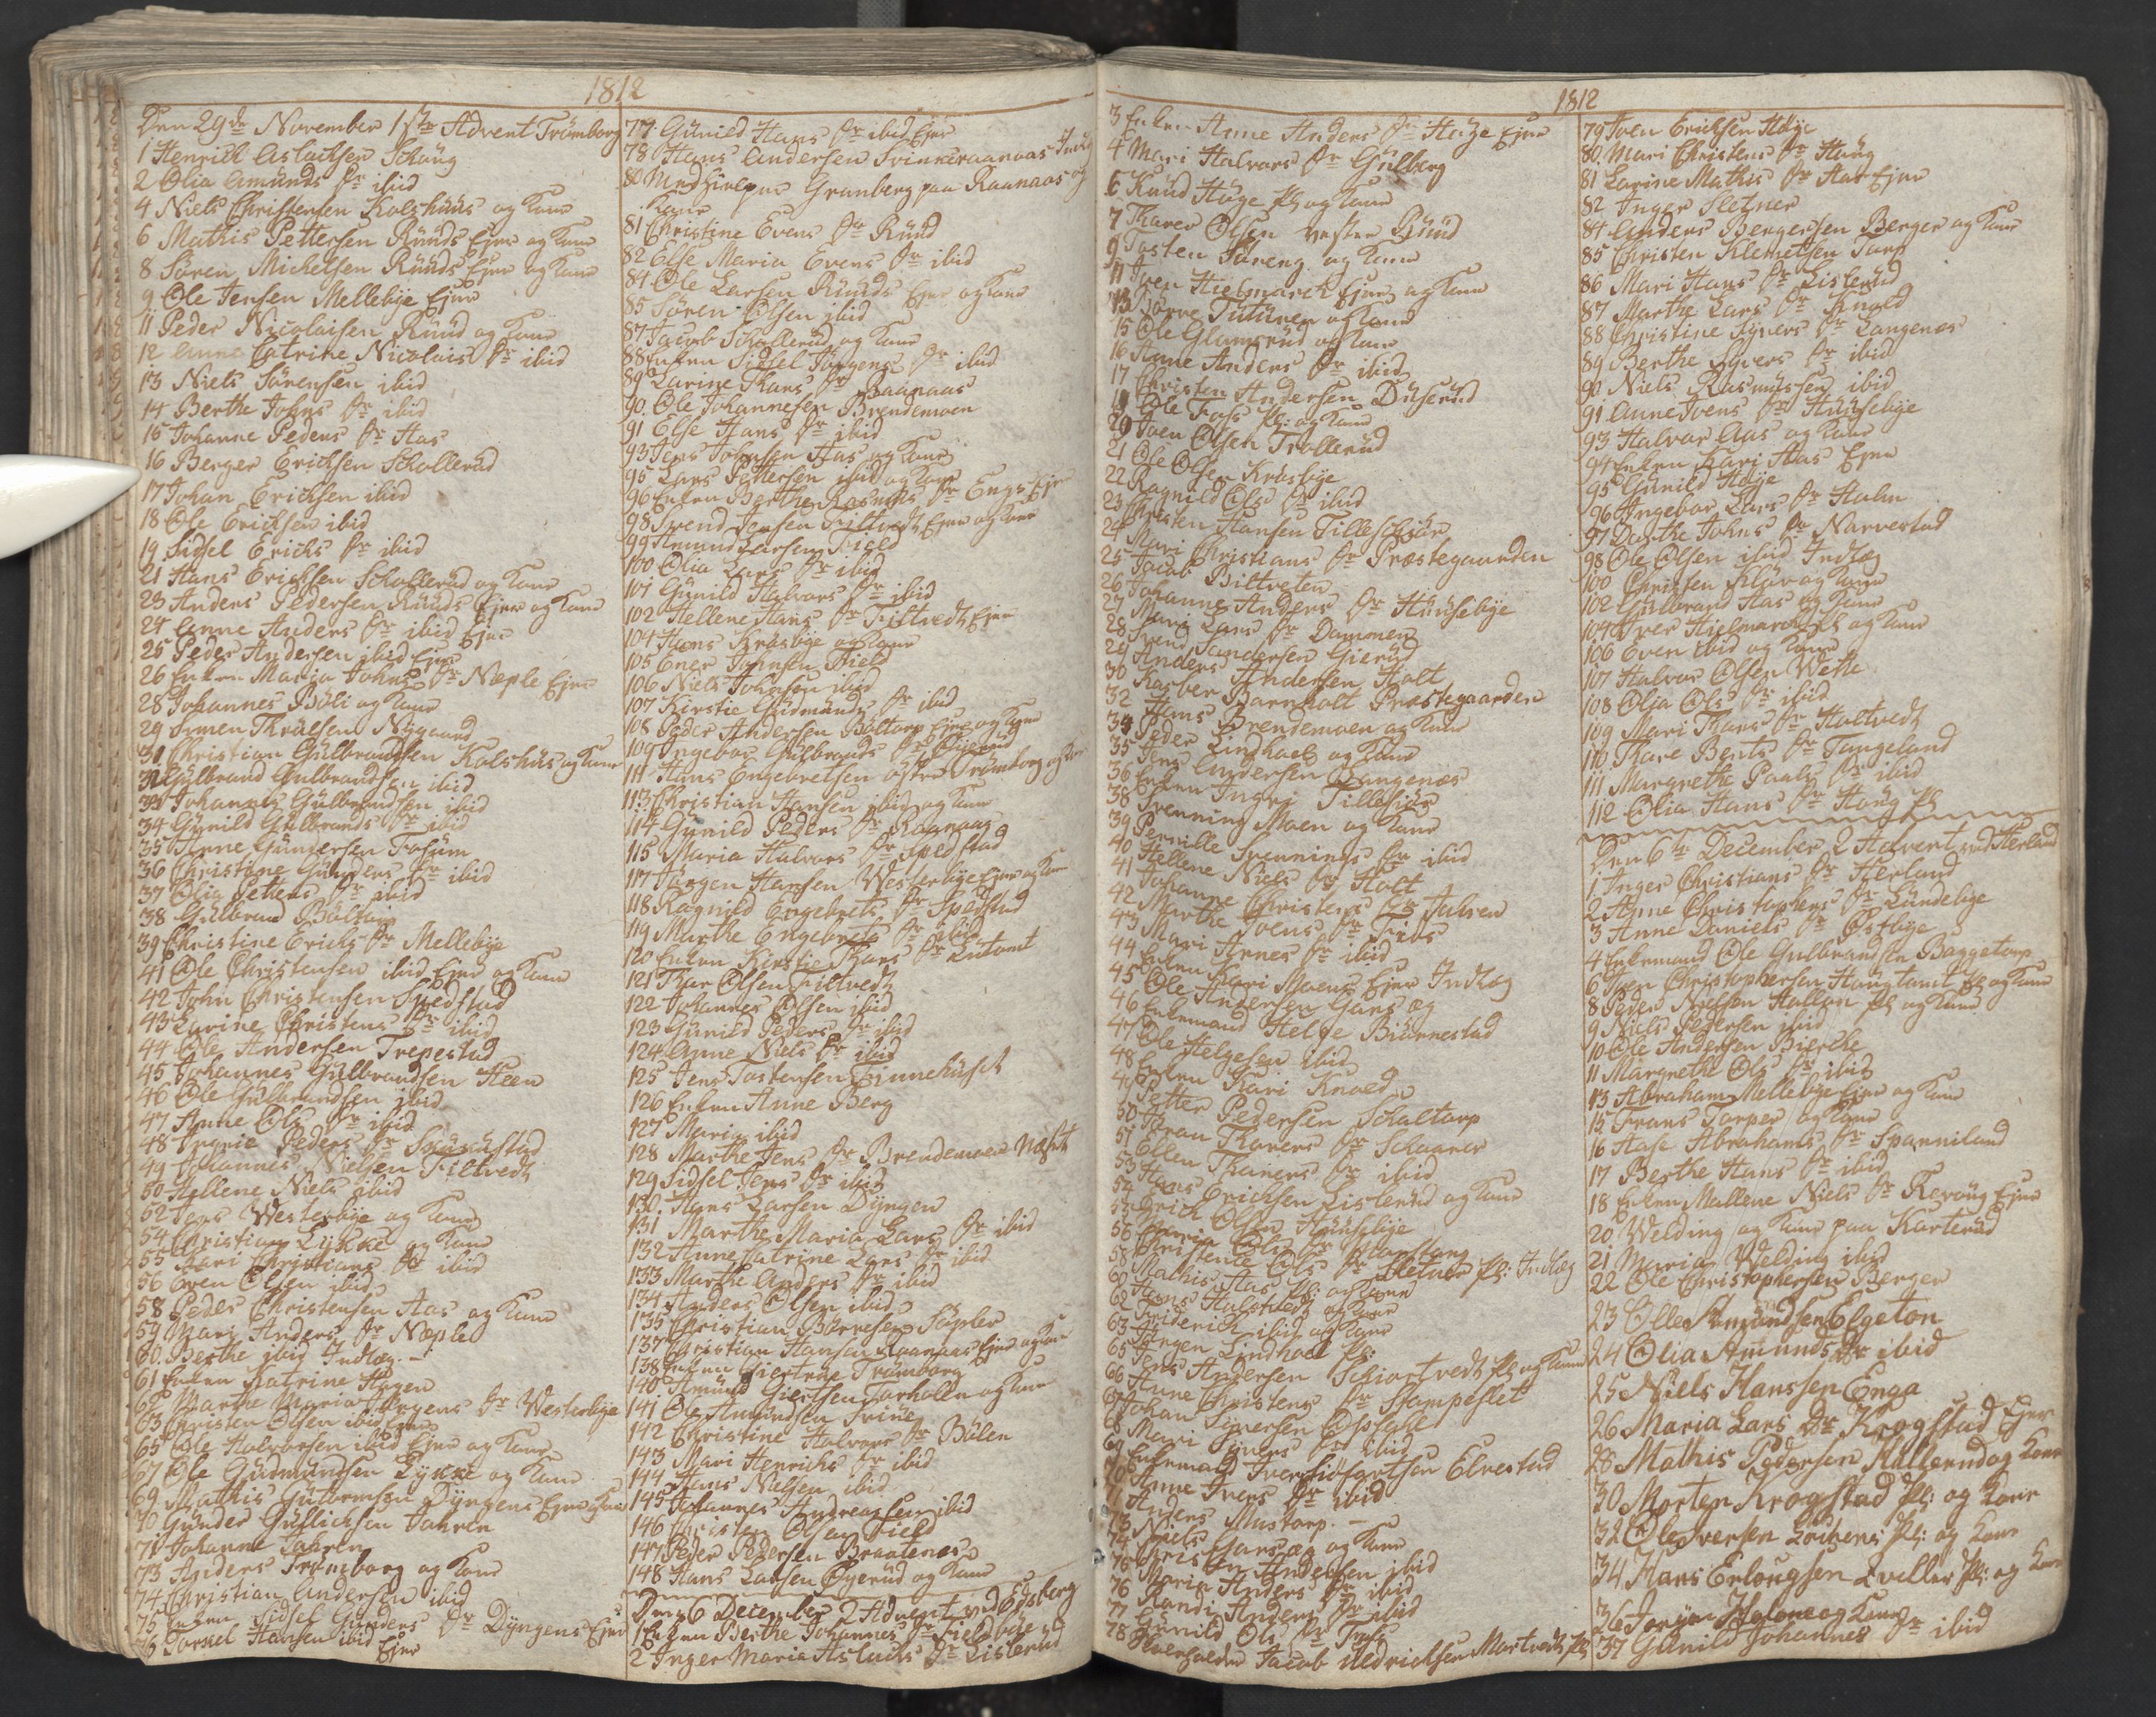 1812
Den 29de November 1ste Advent Trömborg
1 Henrich Aslachsen Schoug
2 Olia Amunds Dr ibid
4 Niels Christensen Kolshuus og Kone
6 Mathis Pettersen Ruuds Ejer og Kone
8 Sören Michelsen Ruuds Ejer og Kone
9 Ole Jensen Mellebye Ejer
11 Peder Nicolaisen Ruud og Kone
12 Anne Catrine Nicolais Dr ibid
13 Niels Sörensen ibid
14 Berthe Johns Dr ibid
15 Johanne Peders Dr Aas
16 Berger Erichsen Schollerud
17 Johan Erichsen ibid
18 Ole Erichsen ibid
19 Sidsel Erichs Dr ibid
21 Hans Erichsen Schollerud og Kone
23 Anders Pedersen Ruuds Ejer og Kone
24 Anne Anders Dr ibid Ejer
25 Peder Andersen ibid Ejer
26 Enken Maria Johns Dr Næple Ejer
28 Johannes Böli og Kone
29 Simen Thrulsen Nygaard
31 Christian Gulbrandsen Kolshus og Kone
32 Gulbrand Gulbrandsen ibid
33 Johannes Gulbrandsen ibid
34 Gunild Gulbrands Dr ibid
35 Anne Gundersen Fosum
36 Christane Gunders Dr ibid
37 Olia Dr ibid
38 Gulbrand Böltorp
39 Christine Erichs Dr Mellebye
41 Ole Christensen ibid Ejer og Kone
42 John Christensen Spedstad
43 Larine Christens Dr ibid
44 Ole Andersen Trepestad
45 Johannes Gulbrandsen Heen
46 Ole Gulbrandsen ibid
47 Anne Ols Dr ibid
48 Peders Dr
49 Johannes Nielsen Filtvedt
50 Hellene Niels ibid
52 Jens Westerbye og Kone
54 Christian Lykke og Kone
55 Kari Christians Dr ibid
56 Even Olsen ibid
58 Peder Christensen Aas og Kone
59 Mari Anders Dr Næple
60 Berthe ibid Indlæg
61 Enken Katrine Hagen
62 Marthe Maria Jörgens Dr Westerbye
63 Christen Olsen ibid Ejer
65 Ole Halvorsen ibid Ejer og Kone
67 Ole Gudmundsen Lykke og Kone
69 Mathis Gulbrandsen Dyngens Ejer og Kone
70 Gunder Gullichsen Jahren
71 Johanne Jahren
73 Anders Trömborg og Kone
74 Christian Andersen ibid
75 Enken Sidsel Gunders Dr Dyngens Ejer
76 Torkel Hansen ibid Ejer
77 Gunild Hans Dr ibid Ejer
78 Hans Andersen Svinneraanaas
80 Medhielper Grønberg paa Raanaas og
Kone
81 Christine Evens Dr Ruud
82 Else Maria Evens Dr ibid
84 Ole Larsen Ruuds Ejer og Kone
85 Sören Olsen ibid
87 Jacob Schollerud og Kone
88 Enken Sidsel Jörgens Dr ibid
89 Larine Thors Dr Raanaas
90 Ole Johannesen Brendemoen
91 Else Hans Dr ibid
93 Jens Johnsen Aas og Kone
95 Lars Pettersen ibid og Kone
96 Enken Berthe Rasmus Dr Engs Ejer
98 Svend Jensen Filtvedt Ejer og Kone
99 Amund Larsen Field
100 Olia Lars Dr ibid
101 Gunild Halvors Dr ibid
102 Hellene Hans Dr Filtvedt Ejer
104 Hans Krosbye og Kone
105 Ener Johnsen Field
106 Niels Johnsen ibid
107 Kirstie Gudmunds Dr ibid
108 Peder Andersen Böltorp Ejer og Kone
109 Ingebor Gulbrands Dr Øyerud
111 Hans Engebretsen östre Trömborg og Kone
113 Christian Hansen ibid og Kone
114 Gunild Peders Dr Raanaas
115 Maria Halvors Dr Spedstad
117 Jörgen Hansen Westerbye Ejer og Kone
118 Ragnild Engebrets Dr Spedstad
119 Marthe Engebrets Dr ibid
120 Enken Kirstie Thors Dr Lintomt
121 Thor Olsen Filtvedt
122 Johannes Olsen ibid
123 Gunild Peders Dr ibid
124 Anne Niels Dr ibid
125 Jens Tostensen Finnehusch
126 Enken Anne Berg
127 Maria ibid
128 Marthe Jens Dr Brendemoen
129 Sidsel Jens Dr ibid
130 Hans Larsen Dyngen
131 Marthe Maria Lars Dr ibid
132 Anne Catrine Lars Dr ibid
133 Marthe Anders Dr ibid
134 Anders Olsen ibid
135 Christian Börresen Sæpler
137 Christian Hansen Raanaas Ejer og Kone
138 Enken Giertrue Trömborg
140 Amund Giertsen Torholen og Kone
141 Ole Amundsen Triue
142 Christine Halvors Dr Bölen
143 Mari Henrichs Dr ibid
144 Hans Nielsen ibid
145 Johannes Andreassen ibid
146 Christen Olsen Field
147 Peder Pedersen Braatenes
148 Hans Larsen Øyerud og Kone
Den 6 December 2 Advent ved Edsberg
1 Enken Berthe Johannes Dr Fieldbye
2 Inger Maria Aslachs Dr Listerud
1812
3 Enken Anne Anders Dr Hauge Ejer
4 Mari Halvors Dr Gulberg
6 Knud Hauge Pl og Kone
7 Tharer Olsen vestre Ruud
9 Tosten Saxeng og Kone
11 Iver Hielmarck Ejer og Kone
13 Tutunen og Kone
15 Ole Glumsrud og Kone
16 Anne Anders Dr ibid
17 Christen Andersen Duserud
19 Ole Foss Pl: og Kone
20 Joen Olsen Trollerud
21 Ole Olsen Krosbye
22 Ragnild Ols Dr ibid
23 Christen Hansen Tilleschiør
24 Mari Christians Dr Præstegaarden
25 Jacob Biltveten
26 Johanne Anders Dr Huusebye
27 Mari Lars Dr Dammen
28 Svend Andersen Gierud
29 Anders Andersen Holt
30 Barnholt Præstegaarden
32 Hans Brendemoen og Kone
34 Peder Lindhaels og Kone
35 Jens Andersen Langenæs
36 Enken Inger Tillesiør
38 Svenning Moen og Kone
39 Pernille Svennings Dr ibid
40 Hellene Niels Dr Holt
41 Johanne Christens Dr Jahren
42 Marthe Joens Dr
43 Mari Arnes Dr ibid
44 Enken Kari Moens Ejer Indlæg
45 Ole Andersen Gaas og
46 Enkemand Helge Biørnestad
47 Ole Helgesen ibid
48 Enken Kari Knoed
49 Petter Pedersen Schaltorp
50 Joran Tharers Dr Schaaner
51 Ellen Tharers Dr ibid
53 Hans Erichsen Listerud og Kone
54 Erich Olsen Huusebye
55 Maria Ols Dr
56 Christente Ols Dr Sletner Pl: Indlæg
58 Mathis Aas Pl: og Kone
60 Hans Halstvedt og Kone
62 Friderich ibid og Kone
63 Jörgen Lindhoel Pl:
65 Jens Andersen Schiortvedt Pl og Kone
66 Anne Christens Dr Stampeslet
67 Johan Syversen Opsahl
68 Mari Syvers Dr ibid
69 Enkemand Iver Elvestad
70 Anne Ivers Dr ibid
71 Anders Mustorp
73 Niels og Kone
74 Christen Andersen ibid
75 Maria Anders Dr ibid
76 Randi Anders Dr ibid
77 Gunild Ols Dr Foss
78 Jacob Aldrichsen Mortvedt Pl
79 Joen Erichsen Høye
80 Mari Christens Dr Haug
81 Larine Mathis Dr Aas Ejer
82 Inger Sletner
84 Anders Bergersen Berger og Kone
85 Christen Klemetsen Torp
86 Mari Hans Dr Listerud
87 Marthe Lars Dr Knold
88 Christine Syvers Dr Langenæs
89 Berthe Syvers Dr ibid
90 Niels Rasmussen ibid
91 Anne Ivers Dr Huusebye
93 Halvor Aas og Kone
94 Enken Kari Aas Ejer
95 Gunild Høye
96 Ingebor Lars Dr Holm
97 Dorthe Johns Dr Narvestad
98 Ole Olsen ibid Indlæg
100 Christen Kløv og Kone
102 Gulbrand Aas og Kone
104 Iver Hielmarck Pl og Kone
106 Even ibid og Kone
107 Halvor Olsen Wethe
108 Olia Ols Dr ibid
109 Mari Thors Dr Holtvedt
110 Thore Bents Dr Tangeland
111 Margrethe Pauls Dr ibid
112 Olia Hans Dr Houg Pl
Den 6te December 2 Advent ved Herland
1 Inger Christians Dr Herland
2 Anne Christophers Dr Lundebye
3 Anne Daniels Dr Østbye
4 Enkemand Ole Gulbrandsen Borgetorp
6 Iver Christophersen Haugtomt Pl og Kone
8 Peder Nielsen Hallan Pl og Kone
9 Niels Pedersen ibid
10 Ole Andersen Bierche
11 Margrethe Ols Dr ibid
13 Abraham Mellebye Ejer og Kone
15 Frans Torper og Kone
16 Aase Abrahams Dr Spanniland
17 Berthe Hans Dr ibid
18 Enken Mallene Niels Dr Revoug Ejer
20 Welding og Kone paa Karterud
21 Maria Welding ibid
22 Ole Christophersen Berger
23 Olle Amundsen Elgeton
24 Olia Amunds Dr ibid
25 Niels Hanssen Enga
26 Maria Lars Dr Krogstad Ejer
28 Mathis Pedersen Hallerud og Kone
30 Morten Krogstad Pl: og Kone
32 Ole Iversen Lochens Pl: og Kone
34 Hans Erlougsen Qviller Pl: og Kone
36 Jörgen Holone og Kone
37 Gunild Johannes Dr ibid